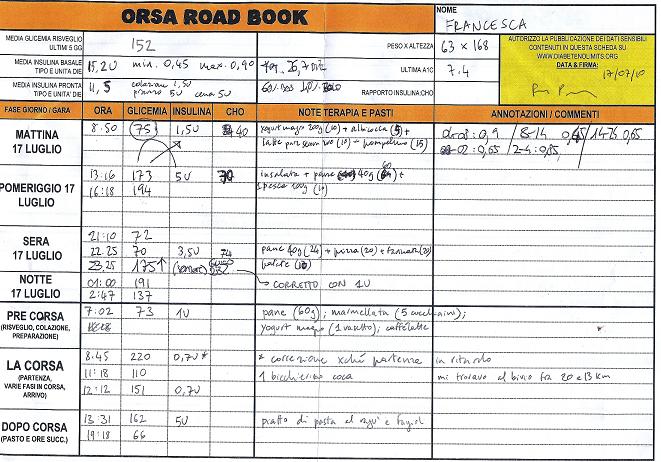 ORSA ROAD BOOK
NOME
FRANCESCA
MEDIA GLICEMIA RISVEGLIO
ULTIMI 5 GG
152
PESO X ALTEZZA
63 x 168
AUTORIZZO LA PUBBLICAZIONE DEI DATI SENSIBILI
CONTENUTI IN QUESTA SCHEDA SU
WWW.DIABETENOLIMITS.ORG
DATA & FIRMA:
17/07/10
MEDIA INSULINA BASALE
TIPO E UNITA' DIE
15,2U min. 0,45 max. 0,90
ULTIMA A1C
7.4
MEDIA INSULINA PRONTA
TIPO E UNITA' DIE
11,5 colazione 1,5U
pranzo 5U cena 5U
RAPPORTO INSULINA:CHO
FASE GIORNO / GARA ORA GLICEMIA INSULINA CHO NOTE TERAPIA E PASTI ANNOTAZIONI / COMMENTI
MATTINA
17 LUGLIO
8.50 75 1,5U 40 yogurt magro 200g (10) + albicocca (5) +
latte parz screm 200 (10) + pompelmo (15)
8-14 0,65 14-75 0,65
02: 0,65
POMERIGGIO 17
LUGLIO
13.16 173 5U 70 insalata + pane 40g +
16:18 194 1 pesca 100g (10)
SERA
17 LUGLIO
21:10 72
22.25 70 3,5U 74 pane 40g (24) + pizza (20) +
23.25 175 ↑
NOTTE
17 LUGLIO
01:00 191 CORRETTO CON 1U
2:47 137
PRE CORSA
(RISVEGLIO, COLAZIONE,
PREPARAZIONE)
7:02 73 1U pane (60g); marmellata (5 cucchiaini);
yogurt magro (1 vasetto); caffèlatte
LA CORSA
(PARTENZA,
VARIE FASI IN CORSA,
ARRIVO)
8.45 220 0,7U * * correzione xché partenza in ritardo
11:18 110 1 bicchierino coca mi trovavo al bivio fra 20 e 13 km
12:12 151 0,7U
DOPO CORSA
(PASTO E ORE SUCC.)
13:31 162 5U piatto di pasta al ragù e fagioli
19:18 66